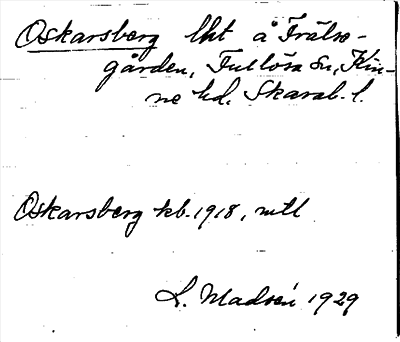 Oskarsberg lht å Fräls-
gården, Fullösa sn, Kin-
ne hd. Skarab. l.
Oskarsberg kb. 1918, mtl
L. Madsén 1929